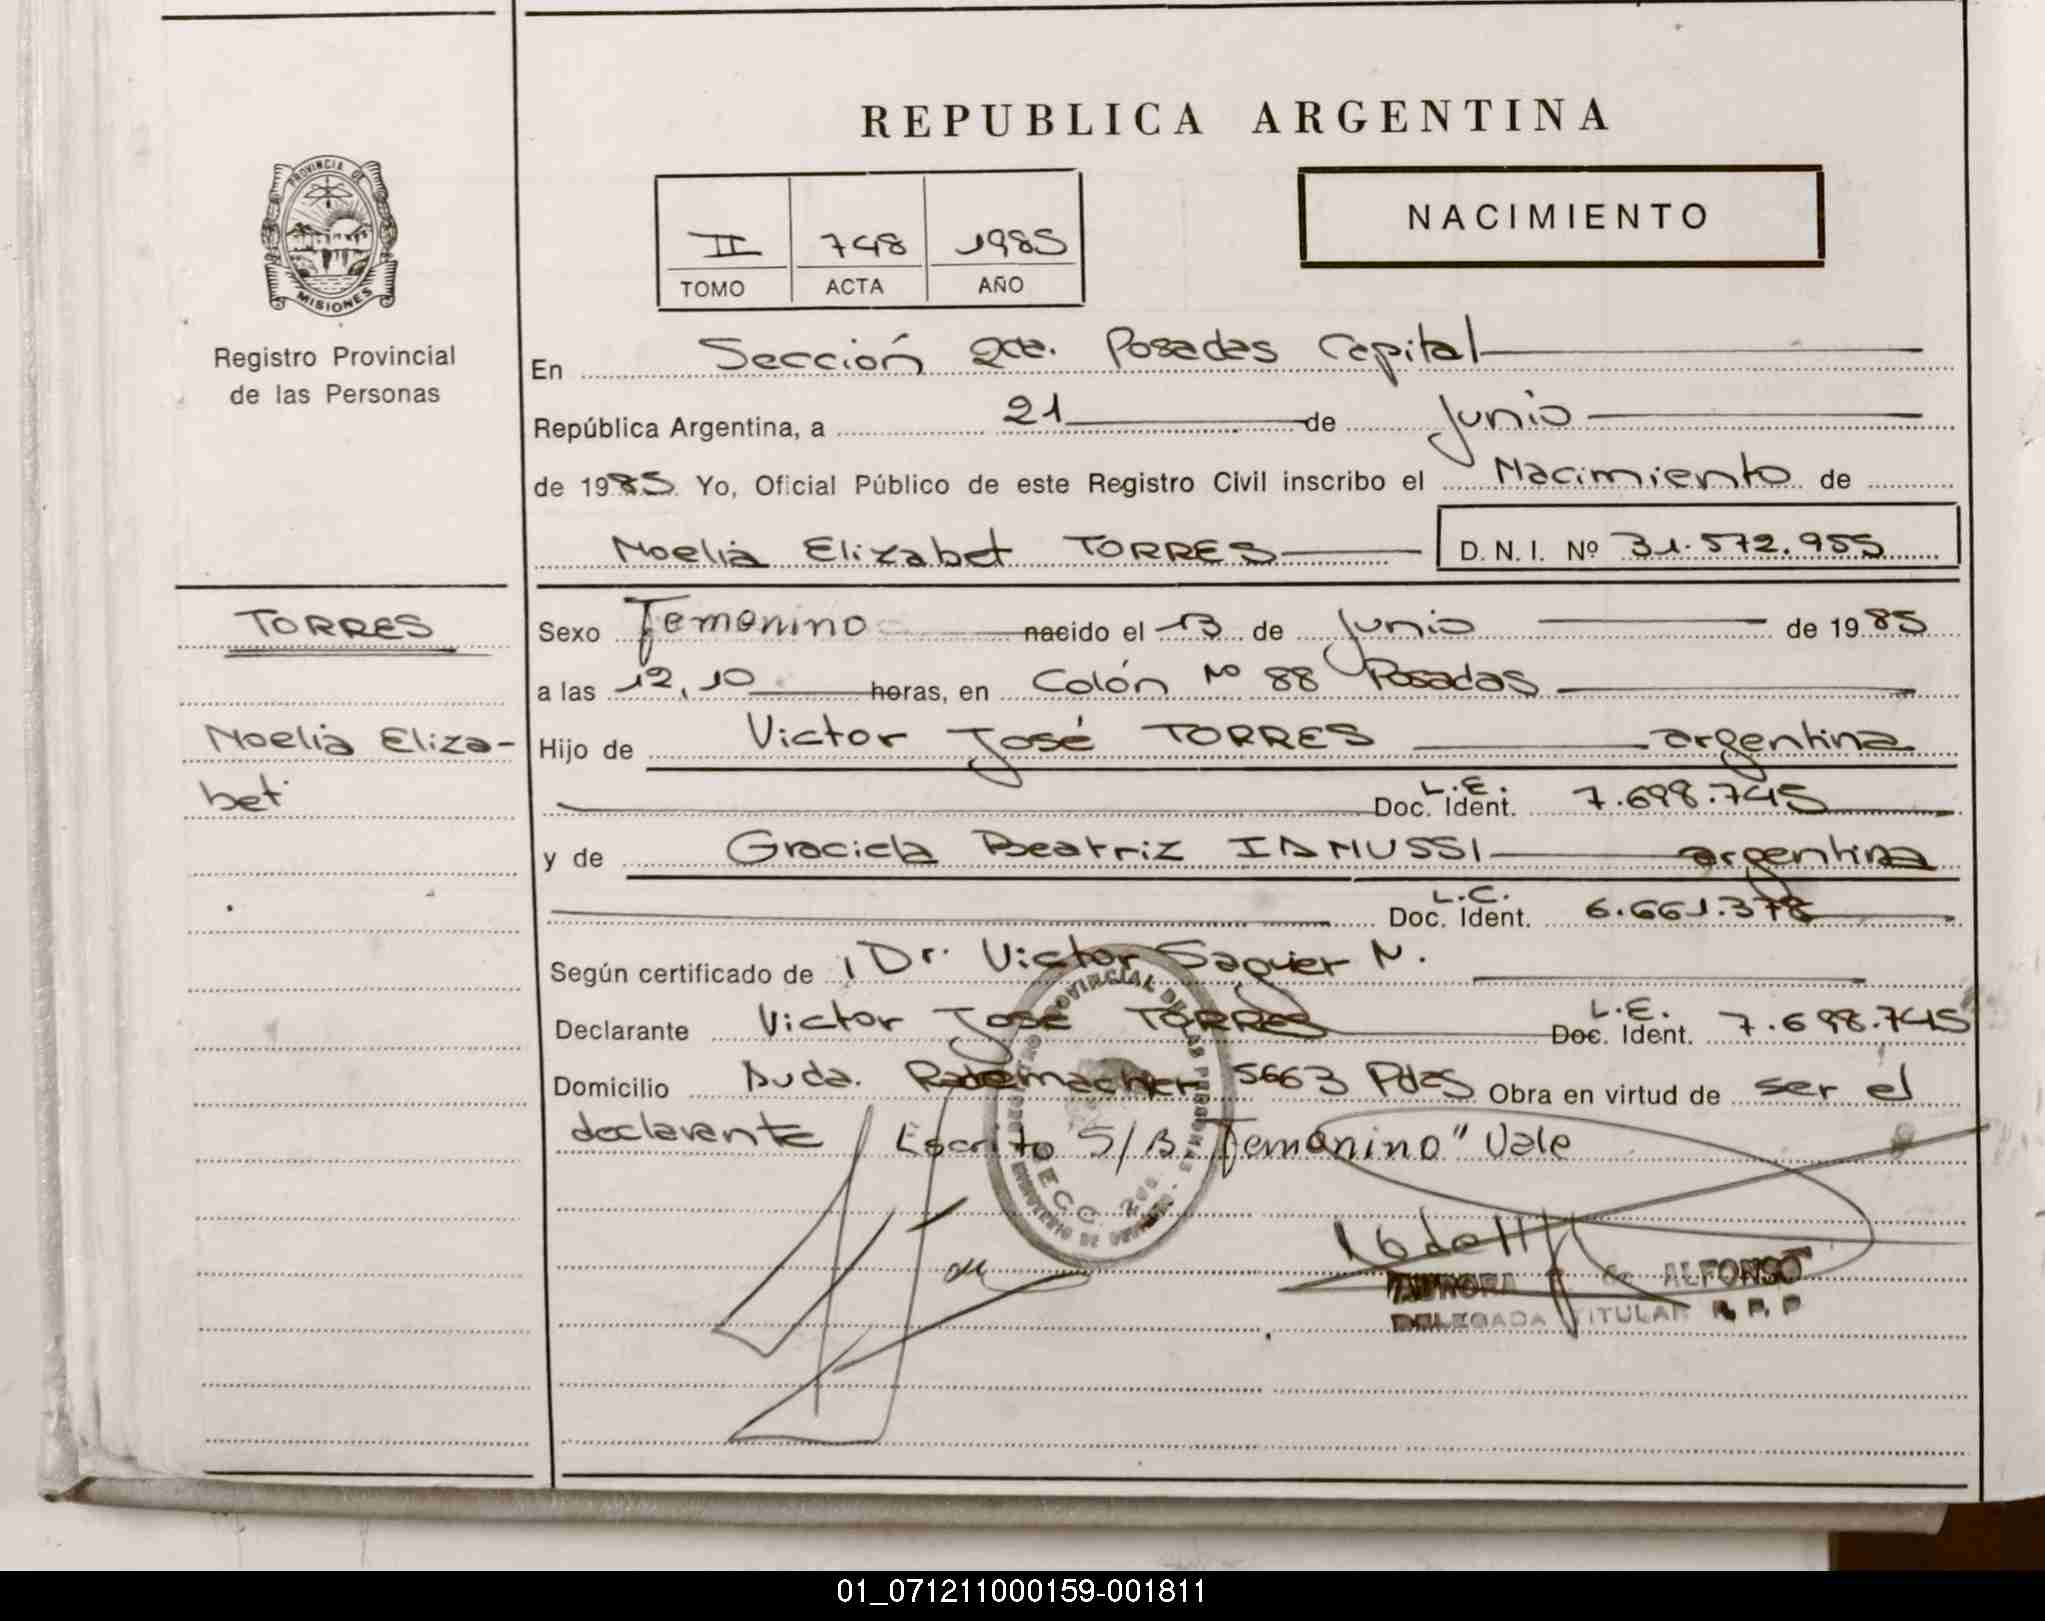 REPUBLICA ARGENTINA
PROVINCIA DE
MISIONES
Registro Provincial
de las Personas
II 748 1985
TOMO ACTA AÑO
NACIMIENTO
En Sección 2da. Posadas Capital
República Argentina, a 21 de Junio
de 1985 Yo, Oficial Público de este Registro Civil inscribo el Nacimiento de
Noelia Elizabet TORRES D.N.I. Nº 31.572.955
TORRES
Noelia Eliza-
bet
Sexo Femenino nacido el 13 de Junio de 1985
a las 12,10 horas, en Colón Nº 88 Posadas
Hijo de Victor José TORRES argentina
L.E.
Doc. Ident. 7.698.745
y de Graciela Beatriz argentina
L.C.
Doc. Ident. 6.661.378
Según certificado de Dr. Victor Saguier N.
Declarante Victor José TORRES L.E. Doc. Ident. 7.698.745
Domicilio Avda. Rademacher 5663 Pdas Obra en virtud de ser el
declarante Escrito S/B "Femenino" Vale
AURORA de ALFONSO
DELEGADA TITULAR R. P. P
01_071211000159-001811